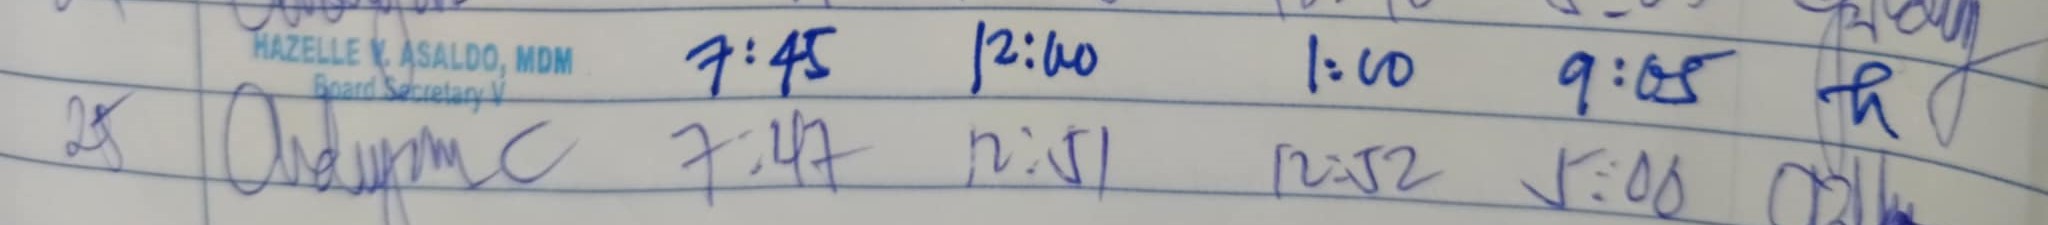 HAZELLE V. ASALDO, MDM 7:45 12:00 1:00 9:05
Board Secretary V
25 7:47 12:51 12:52 5:00